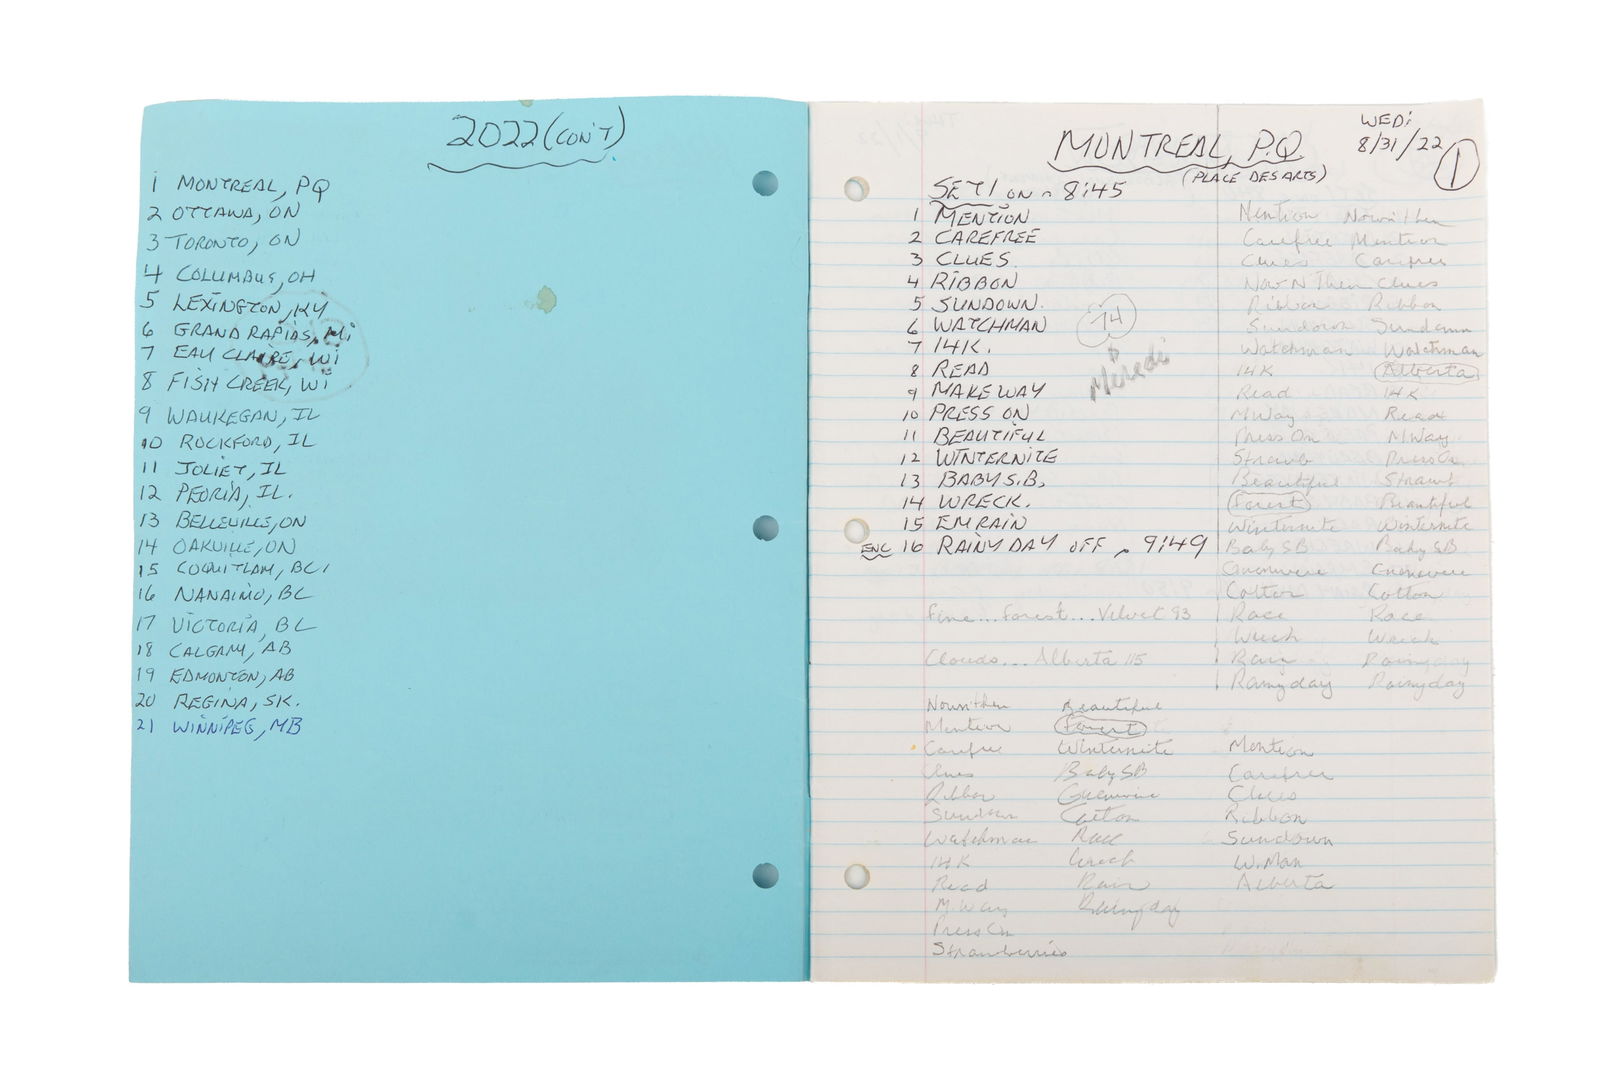 2022 (CON'T)
1 MONTREAL, PQ
2 OTTAWA, ON
3 TORONTO, ON
4 COLUMBUS, OH
5 LEXINGTON, KY
6 GRAND RAPIDS, Mi
7 EAU CLAIRE, Wi
8 FISH CREEK, Wi
9 WAUKEGAN, IL
10 ROCKFORD, IL
11 JOLIET, IL
12 PEORIA, IL.
13 BELLEVILLE, ON
14 OAKVILLE, ON
15 COQUITLAM, BC,
16 NANAIMO, BC
17 VICTORIA, BC
18 CALGARY, AB
19 EDMONTON, AB
20 REGINA, SK.
21 WINNIPEG, MB
WED:
8/31/22 1
MONTREAL, P.Q
(PLACE DES ARTS)
SET 1 ON - 8:45
1 MENTION
2 CAREFREE
3 CLUES.
4 RIBBON
5 SUNDOWN.
6 WATCHMAN
7 14K.
8 READ
9 MAKE WAY
10 PRESS ON
11 BEAUTIFUL
12 WINTERNITE
13 BABY S.B.
14 WRECK.
15 EM RAIN
ENC 16 RAINY DAY OFF - 9:49
74
Mention Nownithen
Carefree Mention
Clues Carefree
Now N Then Clues
Ribbon Ribbon
Sundown Sundown
Watchman Watchman
14K Alberta
Read 14K
M Way Read
Press On M Way
Strawb Press On
Beautiful Strawb
Forest Beautiful
Winternite Winternite
Baby SB Baby SB
Guenevere Guenevere
Cotton Cotton
Race Race
Wreck Wreck
Rain Rainyday
Rainyday Rainyday
Fine... Forest... Velvet 93
Clouds... Alberta 115
Nownithen Beautiful
Mention Forest
Carefree Winternite Mention
Clues Baby SB Carefree
Ribbon Guenevere Clues
Sundown Cotton Ribbon
Watchman Race Sundown
14K Wreck W.Man
Read Rain Alberta
M. Way Rainyday
Press On
Strawberries